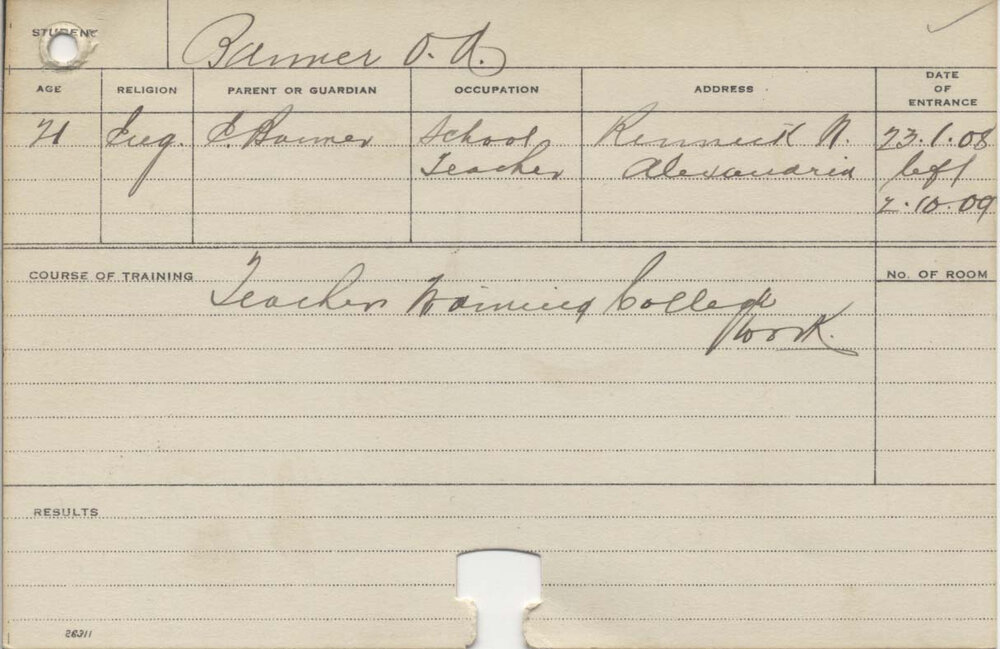 STUDENT Banner O. A.
AGE RELIGION PARENT OR GUARDIAN OCCUPATION ADDRESS DATE OF ENTRANCE
21 Eng. E. Banner School Renwick St. 23.1.08
Teacher Alexandria left
2.10.09
COURSE OF TRAINING Teachers Training College No. OF ROOM
Work.
RESULTS
26311